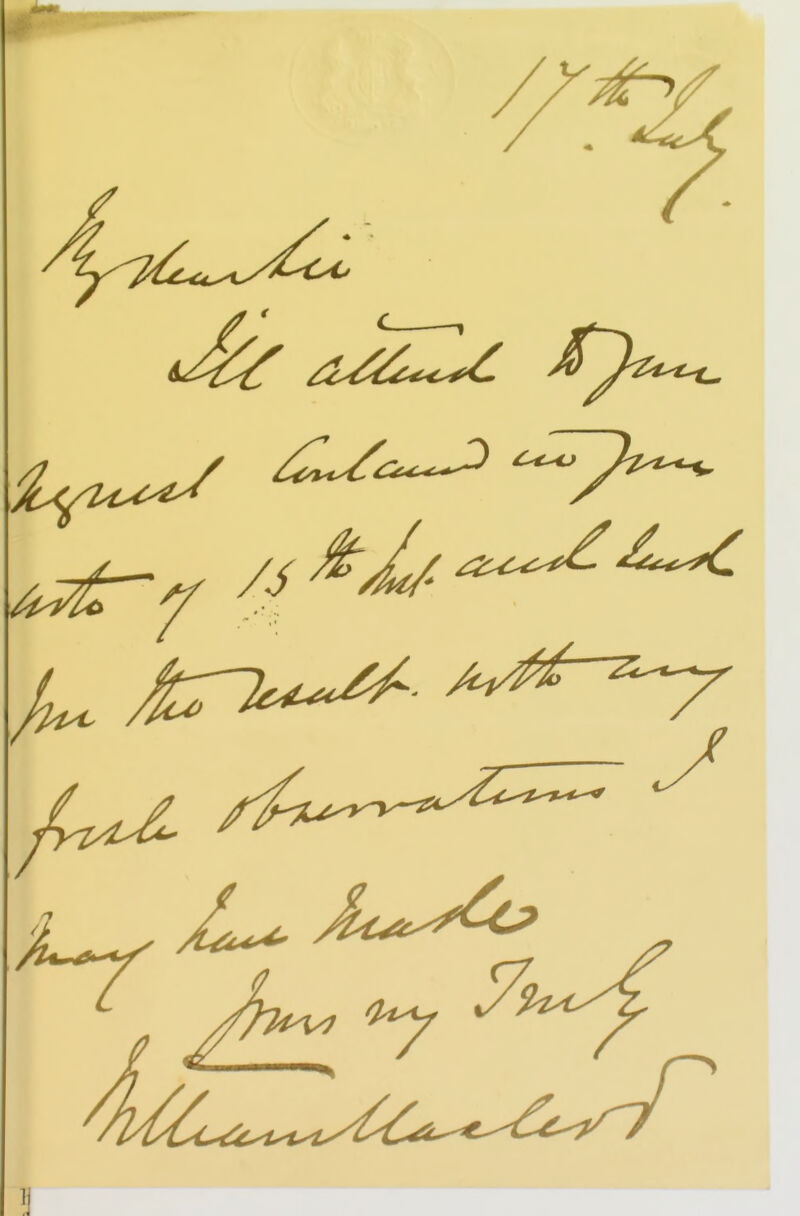 17th. July.
My dear Sir
I'll attend to your
request contained in your
note of 15th Inst. and send
you the result. with any
fresh observations I
may have made
Yours very Truly
William Macleod